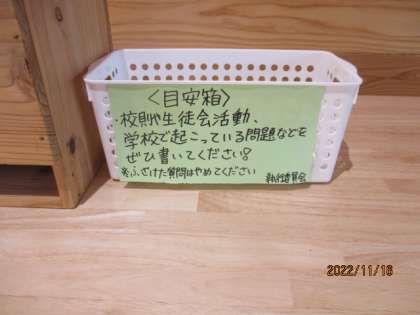 〈目安箱〉
・校則や生徒会活動、
学校で起こっている問題などを
ぜひ書いてください!
※ふざけた質問はやめてください
執行委員会
2022/11/16